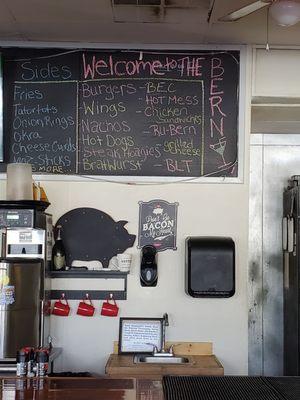 Sides
Fries
Tator tots
Onion Rings
Okra
Cheese Curds
Moz Sticks
& more...
Welcome to THE
BERN
Burgers
Wings
Nachos
Hot Dogs
Steak Hoagies
Bratwurst
- BEC
- Hot Mess
- Chicken
Sandwiches
- Ru-Bern
- grilled
cheese
- BLT
BACON